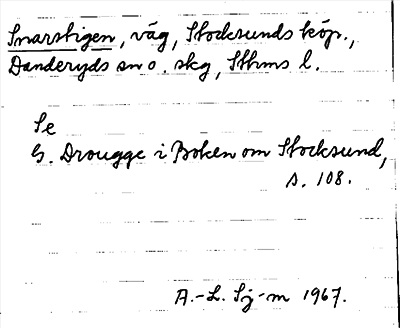 Snarstigen, väg, Stocksunds köp.,
Danderyds sn o. skg, Sthms l.
Se
G. Drougge i Boken om Stocksund,
s. 108.
A.-L. Sj-m 1967.